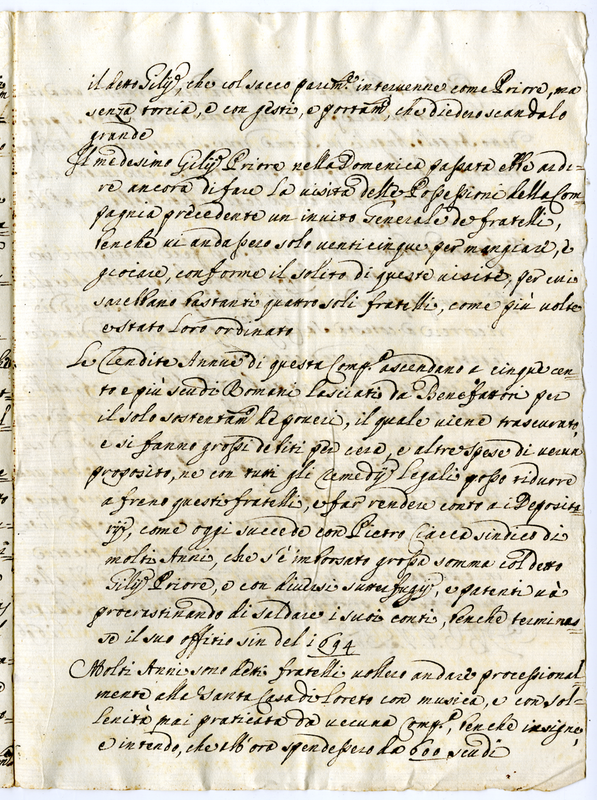 il detto Gilij, che col sacco parim.te intervenne come Priore, ma
senza torcia, e con gesti, e portam.ti, che diedero scandalo
grande
Il medesimo Gilij Priore nella Domenica passata ebbe ardi=
re ancora di fare la visita delle Possessioni della Com=
pagnia precedente un invito Generale de fratelli,
benche vi andassero solo venticinque per mangiare, e
giocare, conforme il solito di queste visite, per cui
sarebbano bastanti quattro soli fratelli, come più volte
è stato loro ordinato
Le Rendite Annue di questa Comp.a ascendano a cinque cen=
to e più scudi Romani lasciati da Benefattori per
il solo sostentam.to de poveri, il quale viene trascurato,
e si fanno grossi debiti per cera, e altre spese di verun
proposito, ne con tutti gli Remedij Legali posso ridurre
a freno questi fratelli, e far rendere conto a i Deposita=
rij, come oggi succede con Pietro Ciacca sindico di
molti Anni, che s'è imborsato grossa somma col detto
Gilij Priore, e con diversi sutterfugij, e patenti và
procrastinando di saldare i suoi conti, benche terminas=
se il suo offitio sin del 1694
Molti Anni sono detti fratelli vollero andare processional=
mente alla Santa Casa di Loreto con musica, e con sol=
lenità mai praticata da veruna Comp.a, benche insigne,
e intendo, che all'ora spendessero da 600 scudi